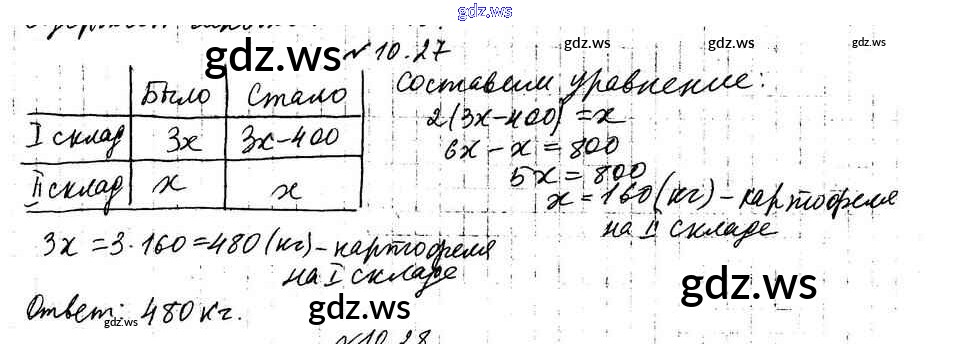 gdz.ws
gdz.ws
№ 10.27
gdz.ws
gdz.ws
Было Стало
I склад 3x 3x-400
II склад x x
Составим уравнение:
2(3x-400)=x
6x-x=800
5x=800
x=160(кг)-картофеля
на II складе
3x=3·160=480(кг)-картофеля
на I складе
Ответ: 480 кг.
gdz.ws
gdz.ws
gdz.ws
gdz.ws
№10.28